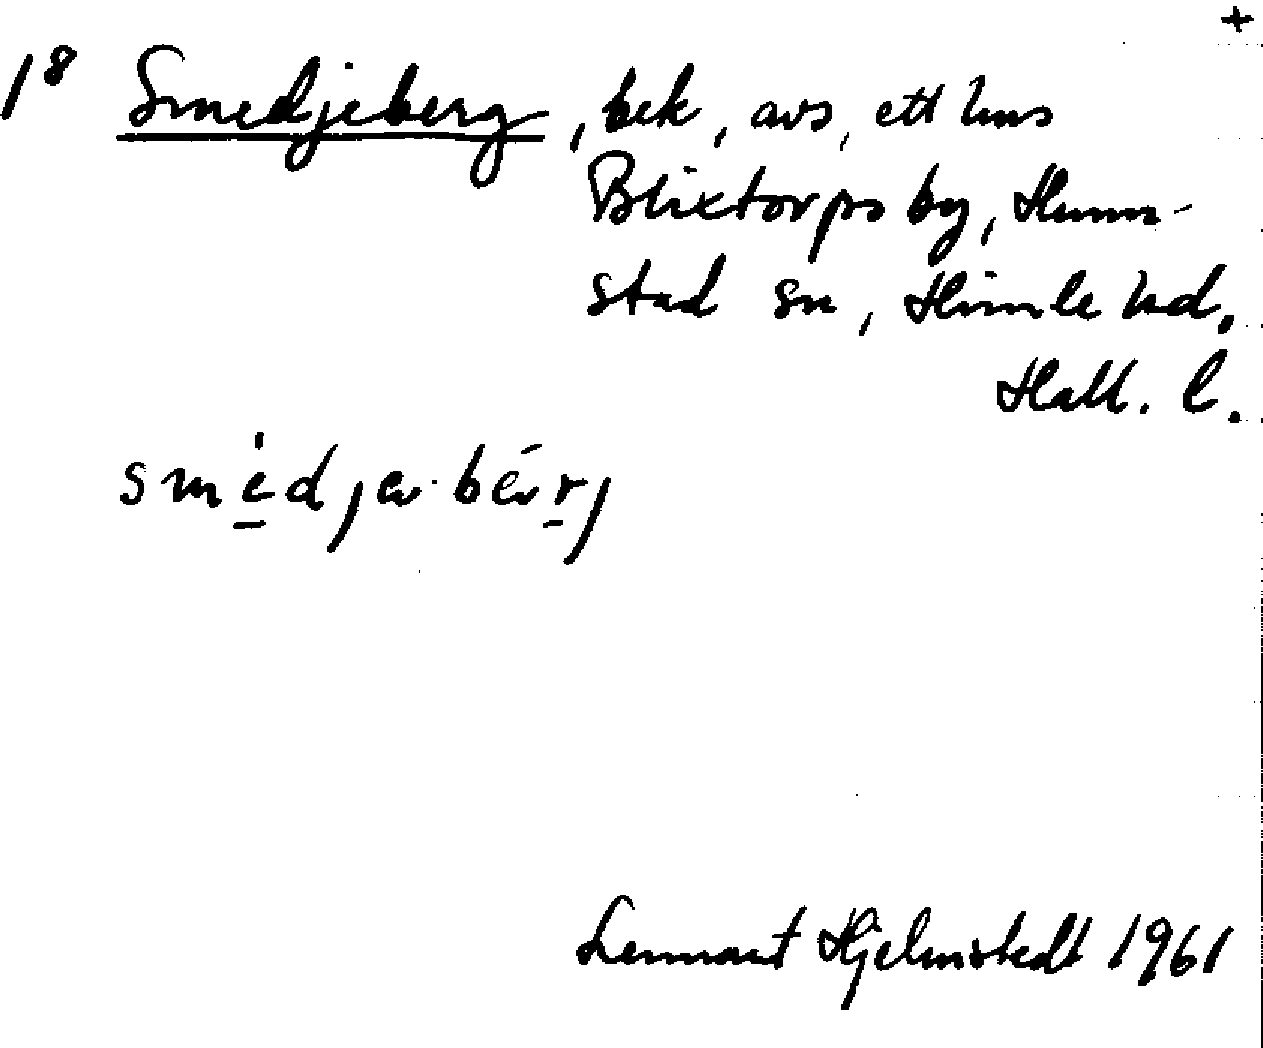 +
1⁸ Smedjeberg, bek, avs, ett hus
Blixtorps by, Hunne-
stad sn, Himle hd,
Hall. l.
smèdjɐ·bǽrj
Lennart Hjelmstedt 1961